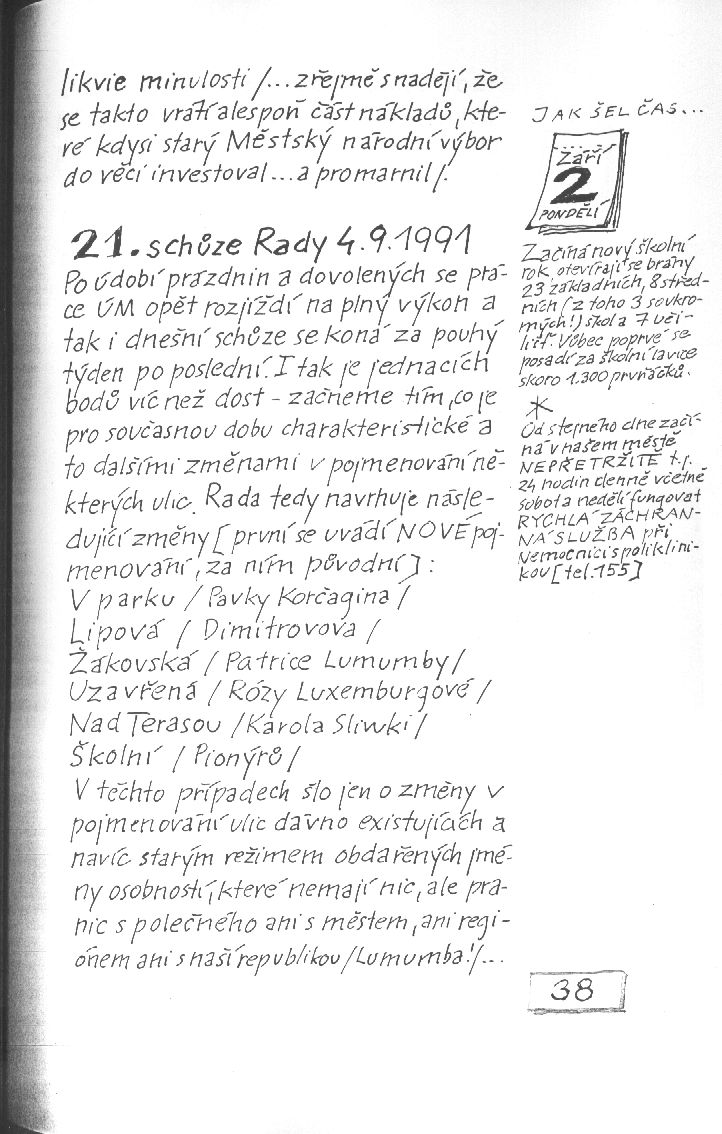 likvie minulosti /...zřejmě s nadějí, že
se takto vrátí alespoň část nákladů, kte-
ré kdysi starý Městský národní výbor
do věcí investoval...a promarnil/.
21. schůze Rady 4.9.1991
Po údobí prázdnin a dovolených se prá-
ce ÚM opět rozjíždí na plný výkon a
tak i dnešní schůze se koná za pouhý
týden po poslední. I tak je jednacích
bodů víc než dost - začneme tím, co je
pro současnou dobu charakteristické a
to dalšími změnami v pojmenování ně-
kterých ulic. Rada tedy navrhuje násle-
dující změny [první se uvádí NOVÉ poj-
menování, za ním původní]:
V parku /Pavky Korčagina/
Lipová / Dimitrovova /
Žákovská /Patrice Lumumby/
Uzavřená /Rózy Luxemburgové/
Nad Terasou /Karola Sliwki/
Školní / Pionýrů/
V těchto případech šlo jen o změny v
pojmenování ulic dávno existujících a
navíc starým režimem obdařených jmé-
ny osobností, které nemají nic, ale pra-
nic společného ani s městem, ani regi-
ónem ani s naší republikou /Lumumba!/...
JAK ŠEL ČAS...
Září
2
PONDĚLÍ
Začíná nový školní
rok, otevírají se brány
23 základních, 8 střed-
ních (z toho 3 soukro-
mých!) škol a 7 uči-
lišť. Vůbec poprvé se
posadí za školní lavice
skoro 1.300 prvňáčků.
*
Od stejného dne začí-
ná v našem městě
NEPŘETRŽITĚ t.j.
24 hodin denně včetně
sobot a nedělí fungovat
RYCHLÁ ZÁCHRAN-
NÁ SLUŽBA při
Nemocnici s poliklini-
kou [tel. 155]
38